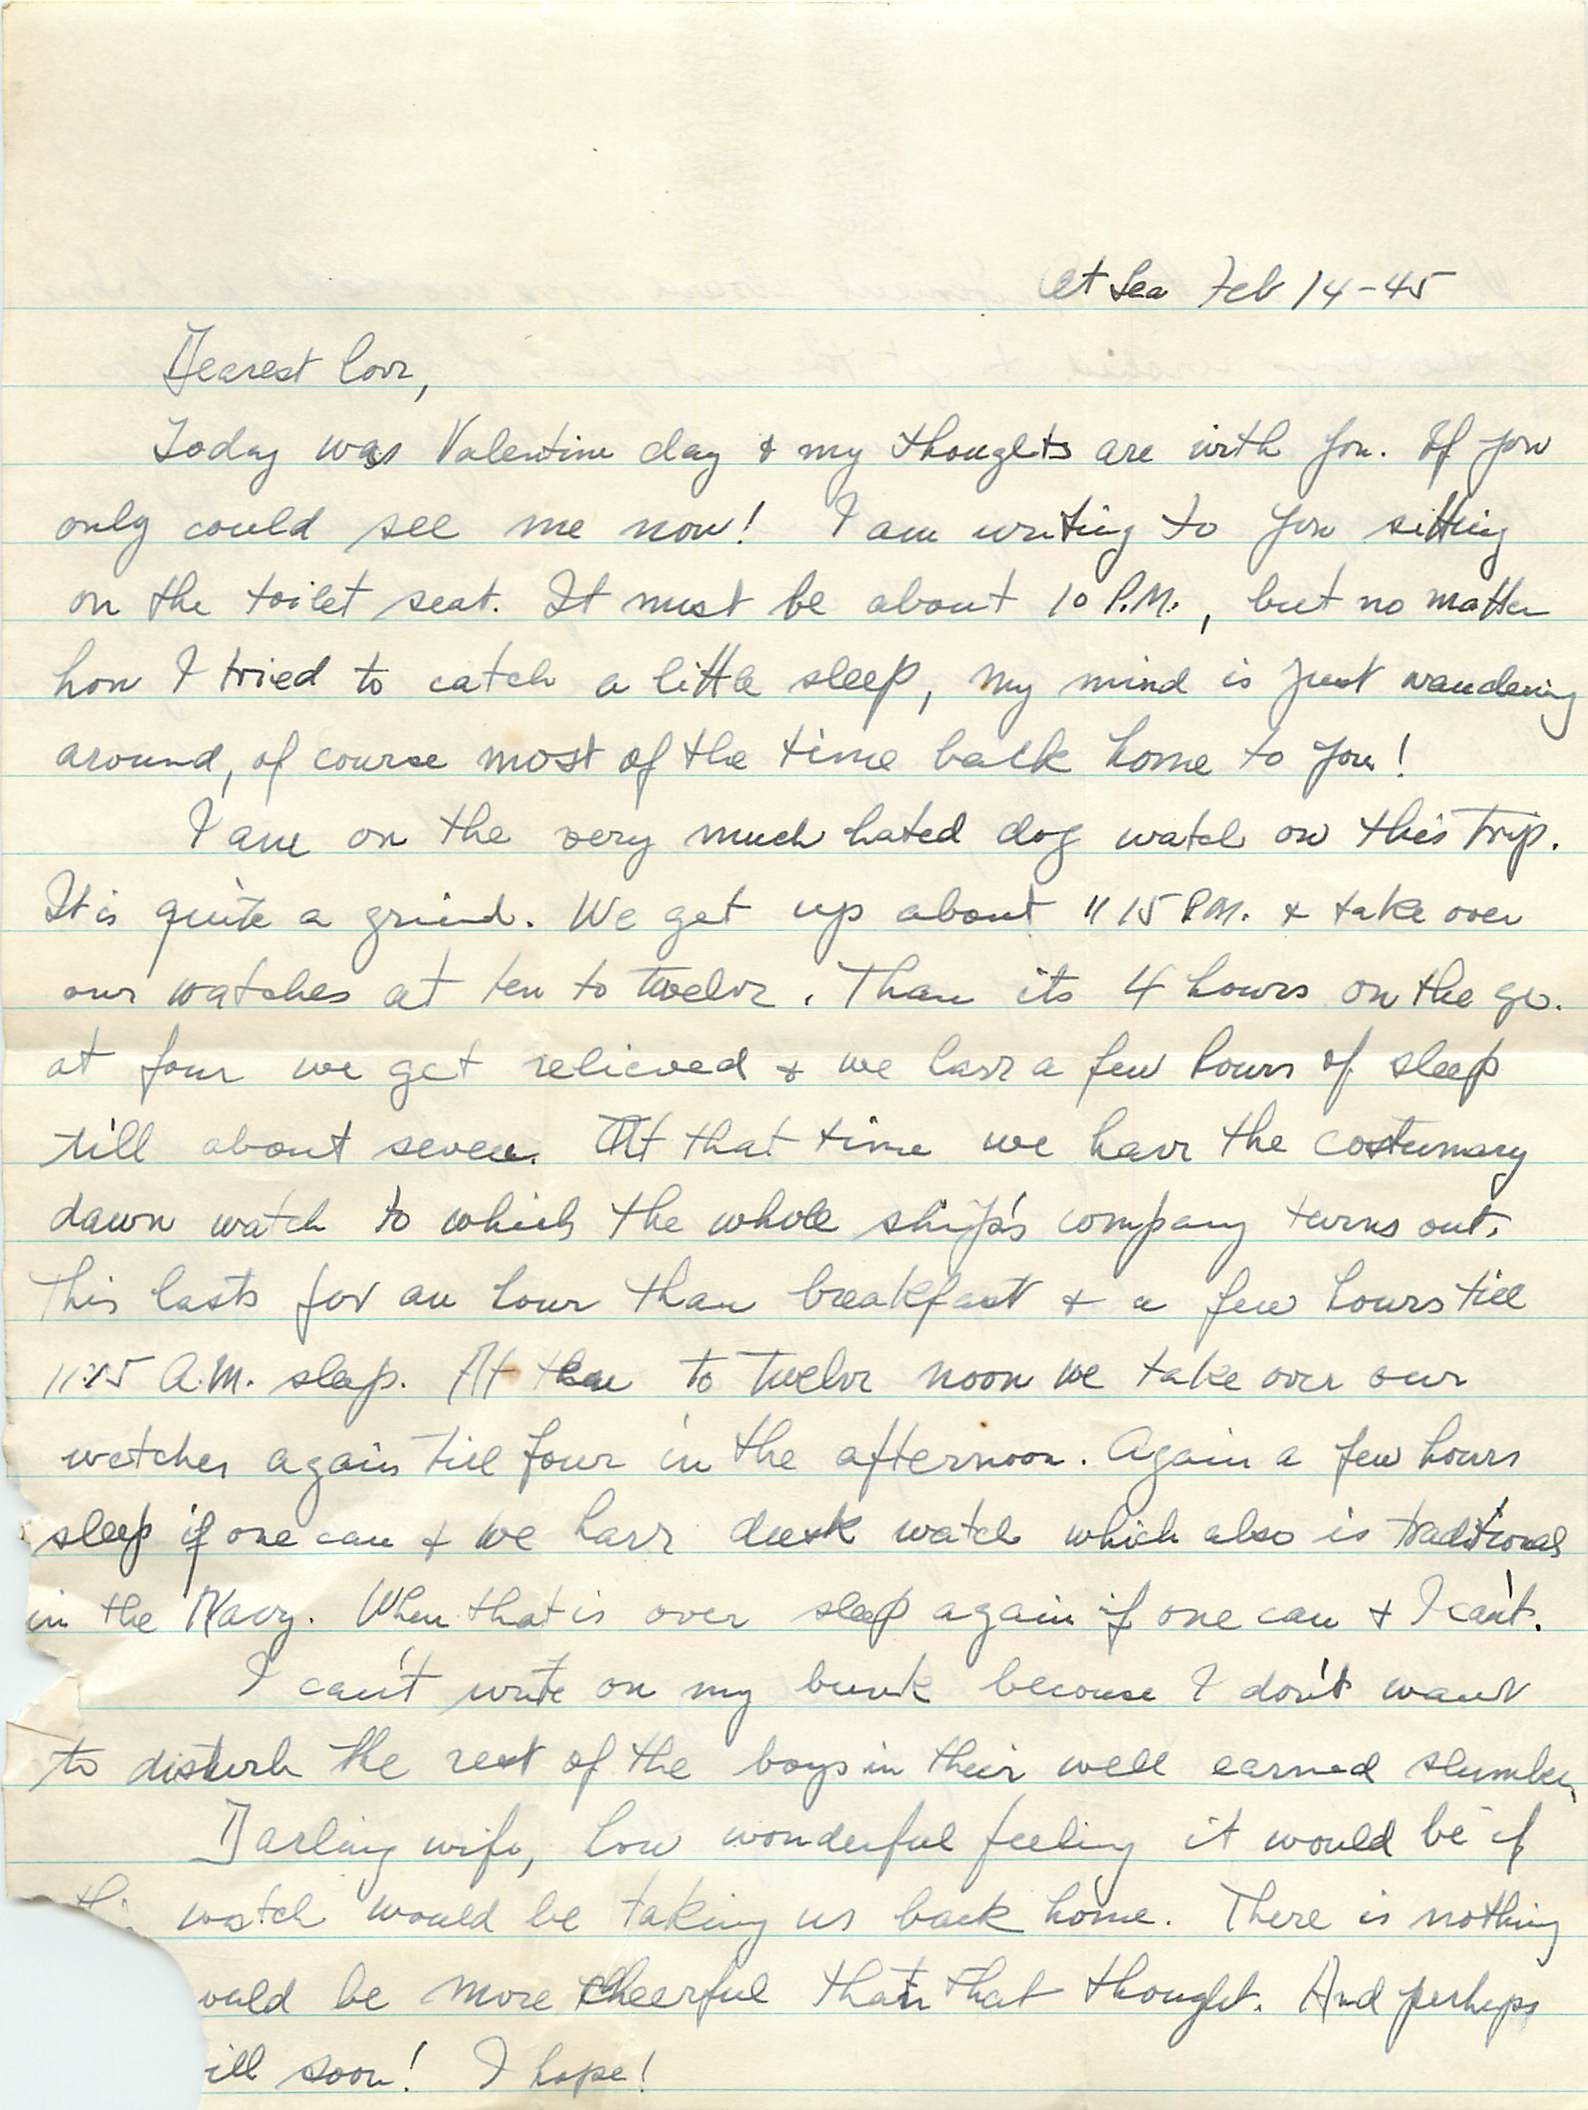 At Sea Feb 14-45
Dearest love,
Today was Valentine day & my thoughts are with you. If you
only could see me now! I am writing to you sitting
on the toilet seat. It must be about 10 P.M., but no matter
how I tried to catch a little sleep, my mind is just wandering
around, of course most of the time back home to you!
I am on the very much hated dog watch on this trip.
It is quite a grind. We get up about 11 15 P.M. & take over
our watches at ten to twelve. Than its 4 hours on the go.
at four we get relieved & we have a few hours of sleep
till about seven. At that time we have the costumary
dawn watch to which the whole ship's company turns out.
This lasts for an hour than breakfast & a few hours till
11:15 A.M. sleep. At ten to twelve noon we take over our
watches again till four in the afternoon. Again a few hours
sleep if one can & we have dusk watch which also is traditional
in the Navy. When that is over sleep again if one can & I can't.
I can't write on my bunk becouse I don't want
to disturb the rest of the boys in their well earned slumber.
Darling wife, how wonderful feeling it would be if
watch would be taking us back home. There is nothing
ould be more cheerful than that thought. And perhaps
ill soon! I hope!